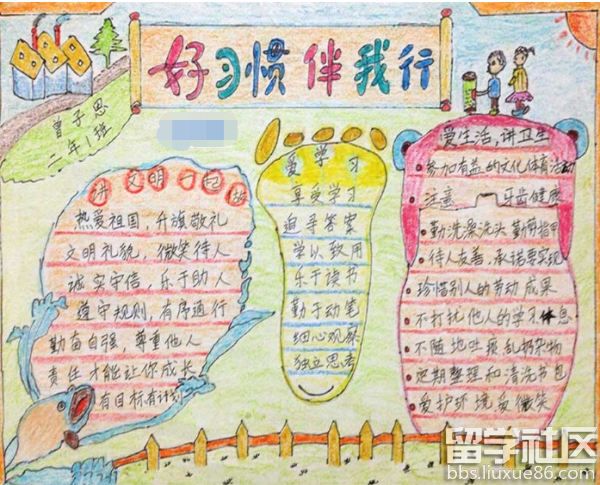 好习惯伴我行
曾子恩
二年1班
讲文明
热爱祖国，升旗敬礼
文明礼貌，微笑待人
诚实守信，乐于助人
遵守规则，有序通行
勤奋自强 尊重他人
责任才能让你成长
有目标有计划
爱学习
享受学习
追寻答案
学以致用
乐于读书
勤于动笔
细心观察
独立思考
爱生活，讲卫生
参加有益的文化体育活动
注意 牙齿健康
勤洗澡洗头 勤剪指甲
待人友善，承诺要实现
珍惜别人的劳动成果
不打扰他人的学习休息
不随地吐痰乱扔杂物
定期整理和清洗书包
爱护环境爱微笑
留学社区
bbs.liuxue86.com